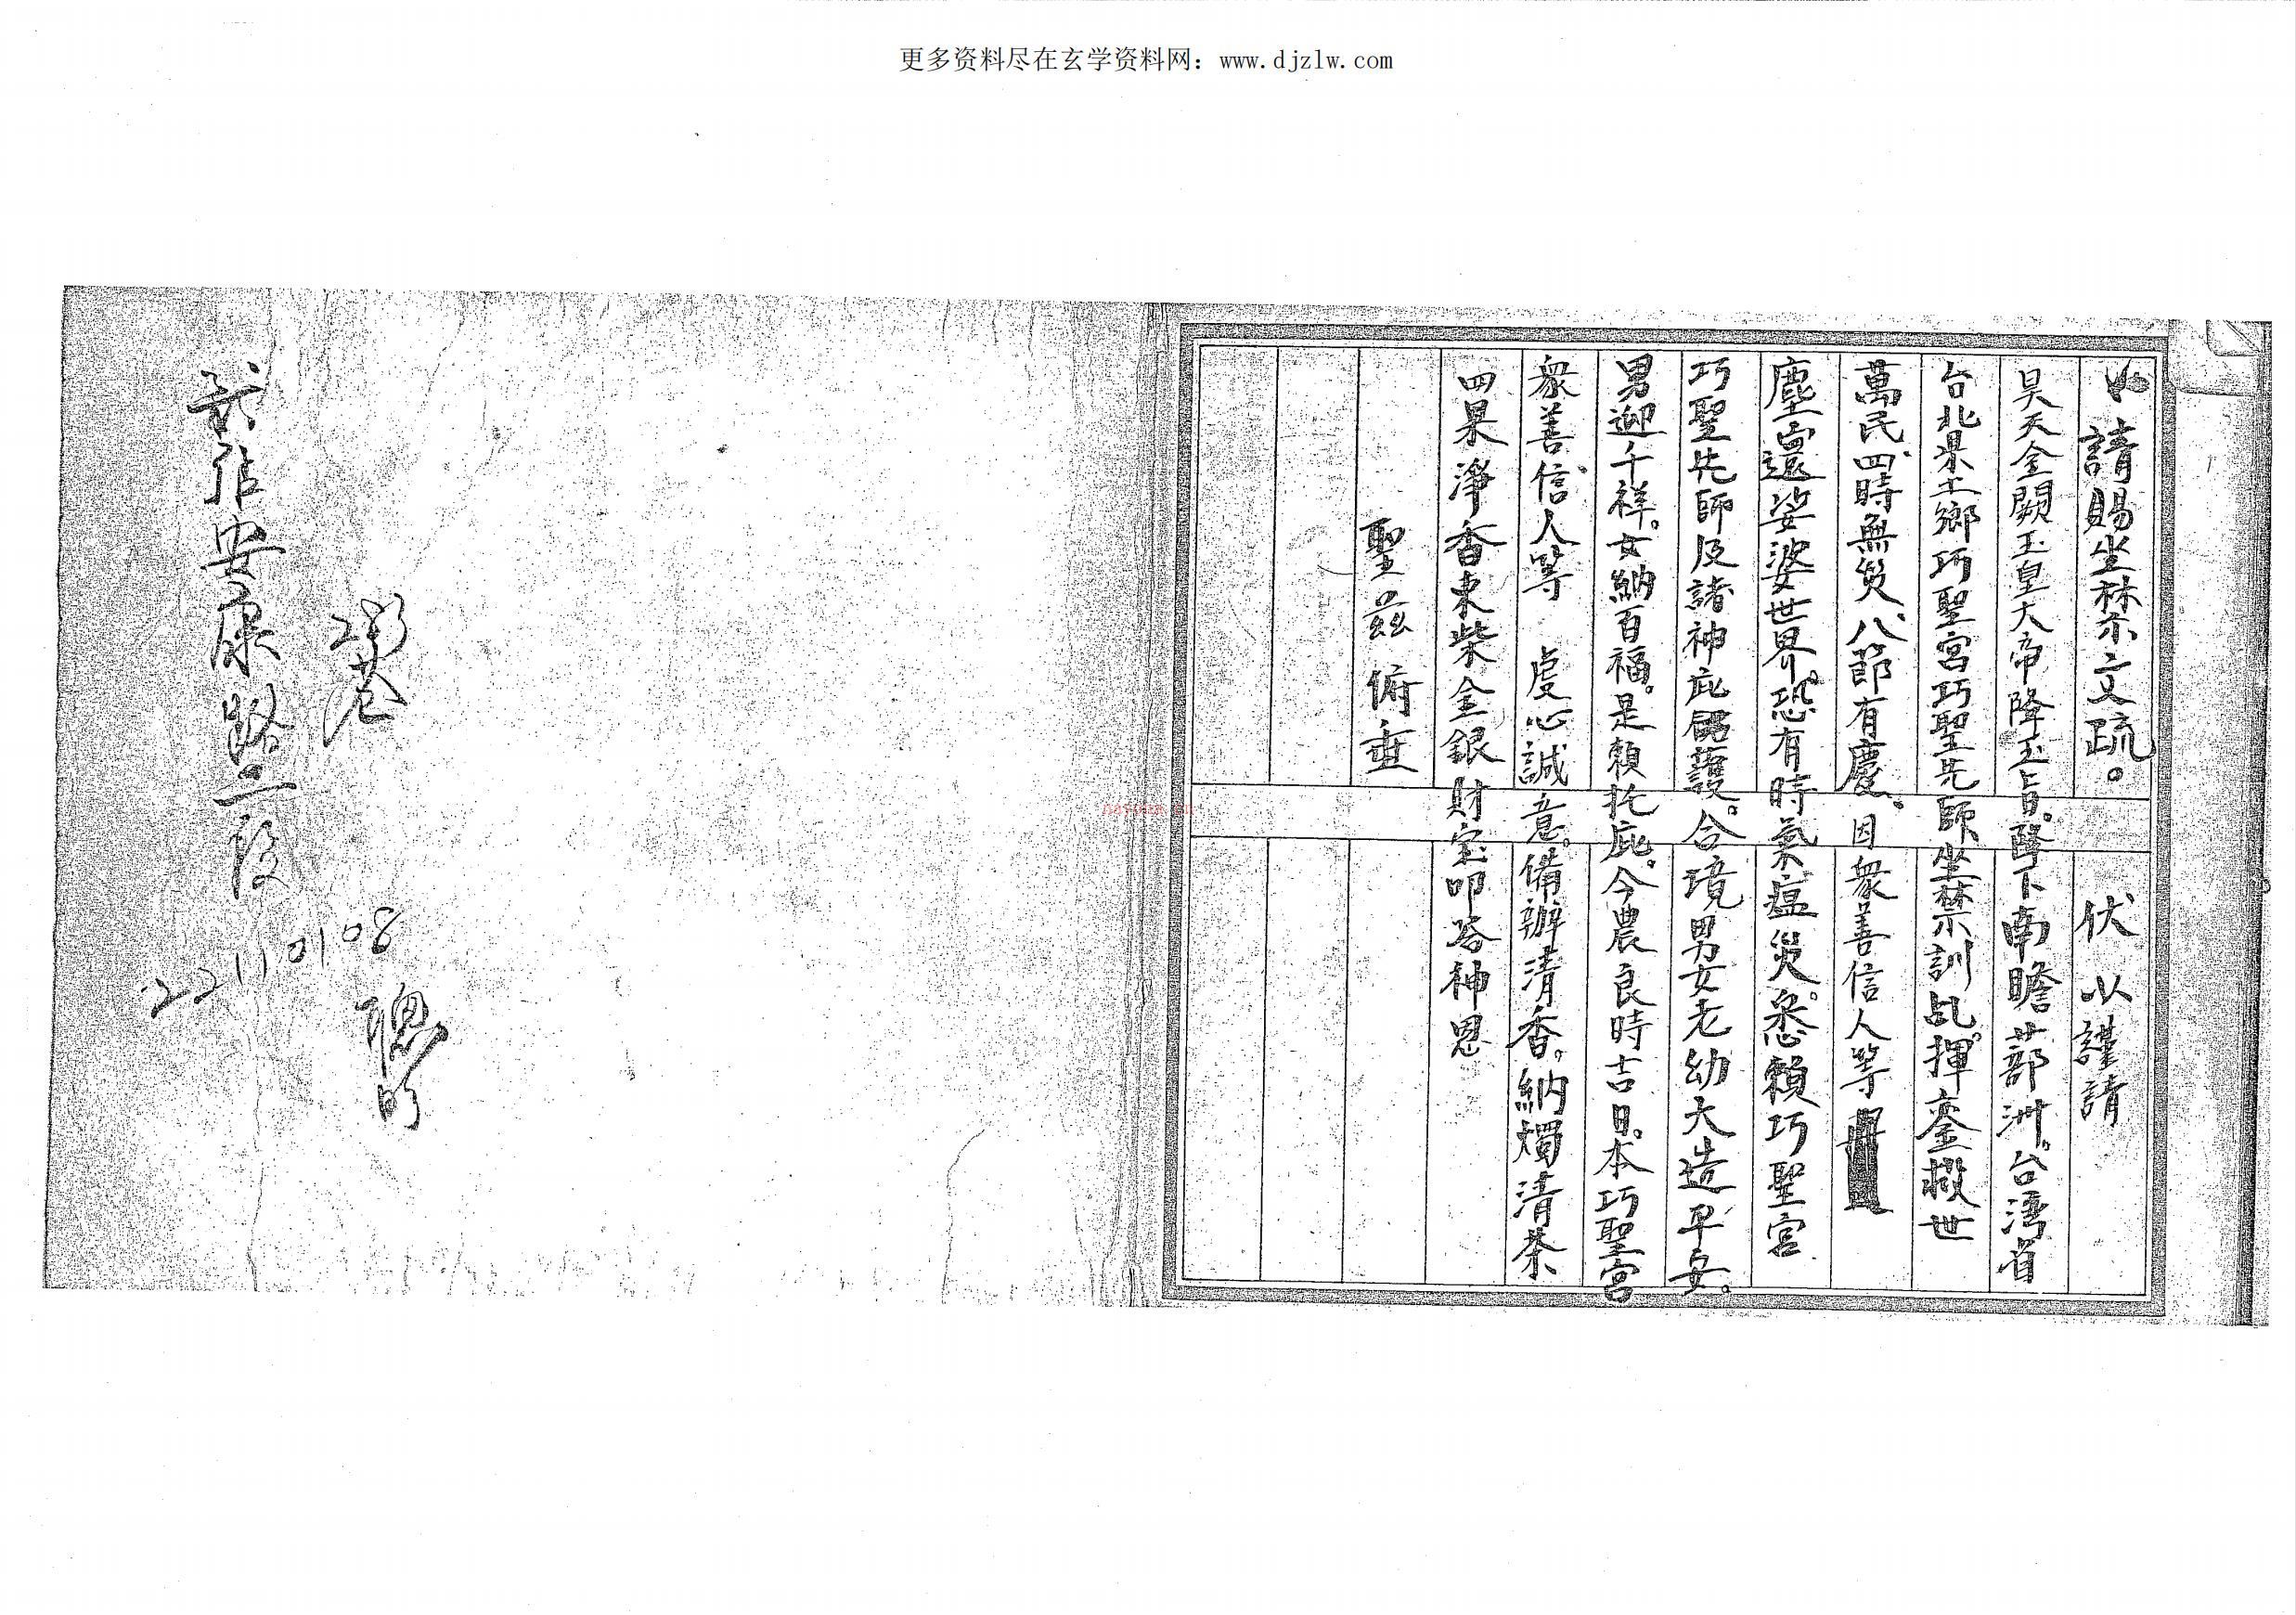 更多资料尽在玄学资料网：www.djzlw.com
請賜坐禁文疏。 伏以謹請
昊天金闕玉皇大帝降玉旨。降下南瞻部洲。台湾省
台北県土鄉巧聖宮巧聖先師坐禁訓乩。揮鸾救世
萬民。四時無災。八節有慶。因衆善信人等
塵寰娑婆世界。恐有時氣瘟災。悉賴巧聖宮
巧聖先師及諸神庇佑護。合境男女老幼大造平安。
男迎千祥。女納百福。是賴托庇。今農良時吉日。本巧聖宮
衆善信人等 虔心誠意。備辦清香。納燭清茶
四果淨香東柴金銀財宝叩答神恩
聖兹俯垂
港
安康路二段
22110108
聰明